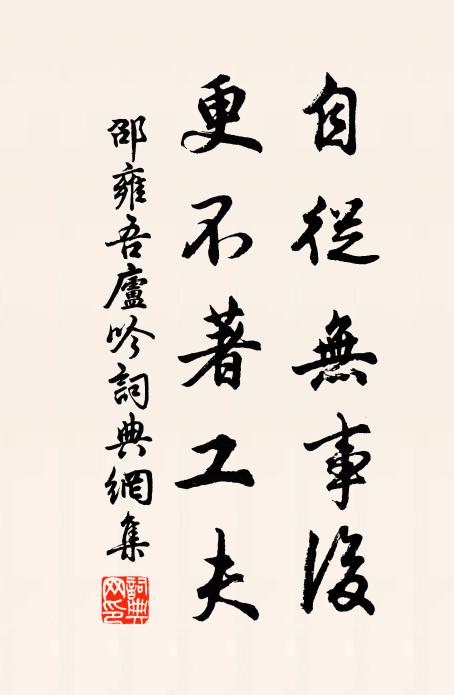 自從無事後
更不著工夫
邵雍吾廬吟詞典網集
詞典
网印